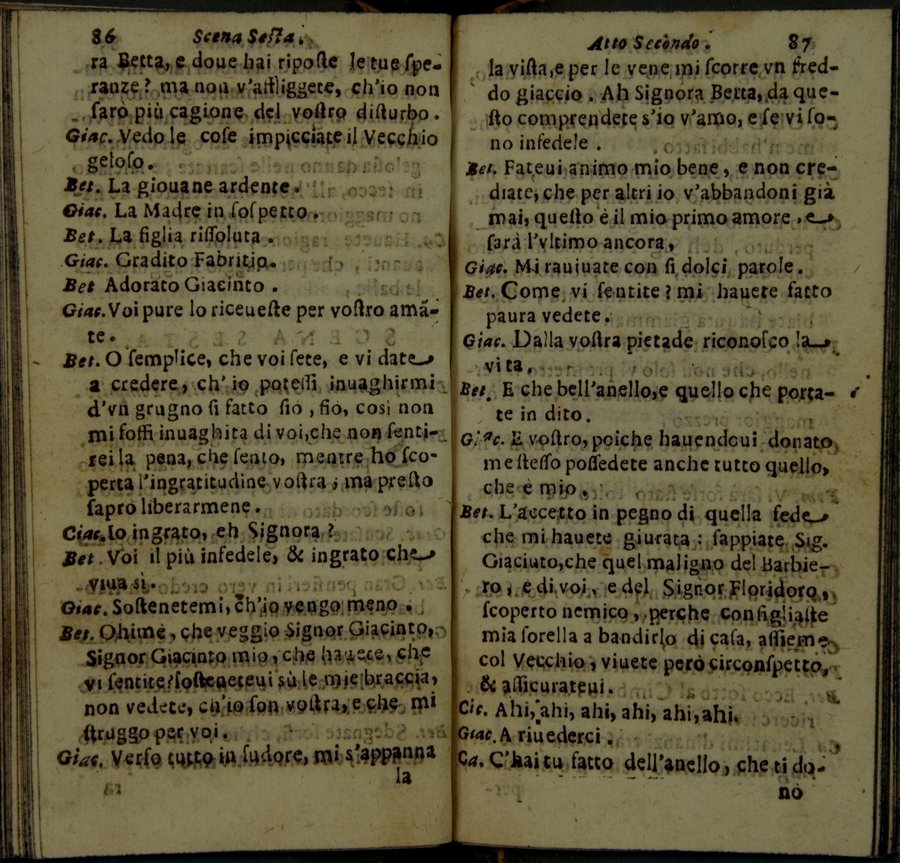 86 Scena Sesta.
ra Betta, e doue hai riposte le tue spe-
ranze? ma non v'affliggete, ch'io non
sarò più cagione del vostro disturbo.
Giac. Vedo le cose impicciate il Vecchio
geloso.
Bet. La giouane ardente.
Giac. La Madre in sospetto.
Bet. La figlia rissoluta.
Giac. Gradito Fabritio.
Bet Adorato Giacinto.
Giac. Voi pure lo riceueste per vostro amã-
te.
Bet. O semplice, che voi sete, e vi date
a credere, ch'io potessi inuaghirmi
d'vn grugno sì fatto fiò, fiò, così non
mi fossi inuaghita di voi, che non senti-
rei la pena, che sento, mentre ho sco-
perta l'ingratitudine vostra; ma presto
saprò liberarmene.
Ciac. Io ingrato, eh Signora?
Bet. Voi il più infedele, & ingrato che
viua sì.
Giac. Sostenetemi, ch'io vengo meno.
Bet. Ohimè, che veggio Signor Giacinto,
Signor Giacinto mio, che hauete, che
vi sentite? sosteneteui sù le mie braccia,
non vedete, ch'io son vostra, e che mi
struggo per voi.
Giac. Verso tutto in sudore, mi s'appanna
la
Atto Secondo. 87
la vista, e per le vene mi scorre vn fred-
do giaccio. Ah Signora Betta, da que-
sto comprendete s'io v'amo, e se vi so-
no infedele.
Bet. Fateui animo mio bene, e non cre-
diate, che per altri io v'abbandoni già
mai, questo è il mio primo amore, e
sarà l'vltimo ancora,
Giac. Mi rauiuate con sì dolci parole.
Bet. Come vi sentite? mi hauete fatto
paura vedete.
Giac. Dalla vostra pietade riconosco la
vita.
Bet. E che bell'anello, e quello che porta-
te in dito.
Giac. E vostro, poiche hauendoui donato
me stesso possedete anche tutto quello,
che è mio.
Bet. L'accetto in pegno di quella fede
che mi hauete giurata: sappiate Sig.
Giaciuto, che quel maligno del Barbie-
ro, è di voi, e del Signor Floridoro,
scoperto nemico, perche consigliaste
mia sorella a bandirlo di casa, assieme
col Vecchio, viuete però circonspetto,
& assicurateui.
Cic. Ahi, ahi, ahi, ahi, ahi, ahi.
Giac. A riuederci.
Ca. C'hai tu fatto dell'anello, che ti do-
nò